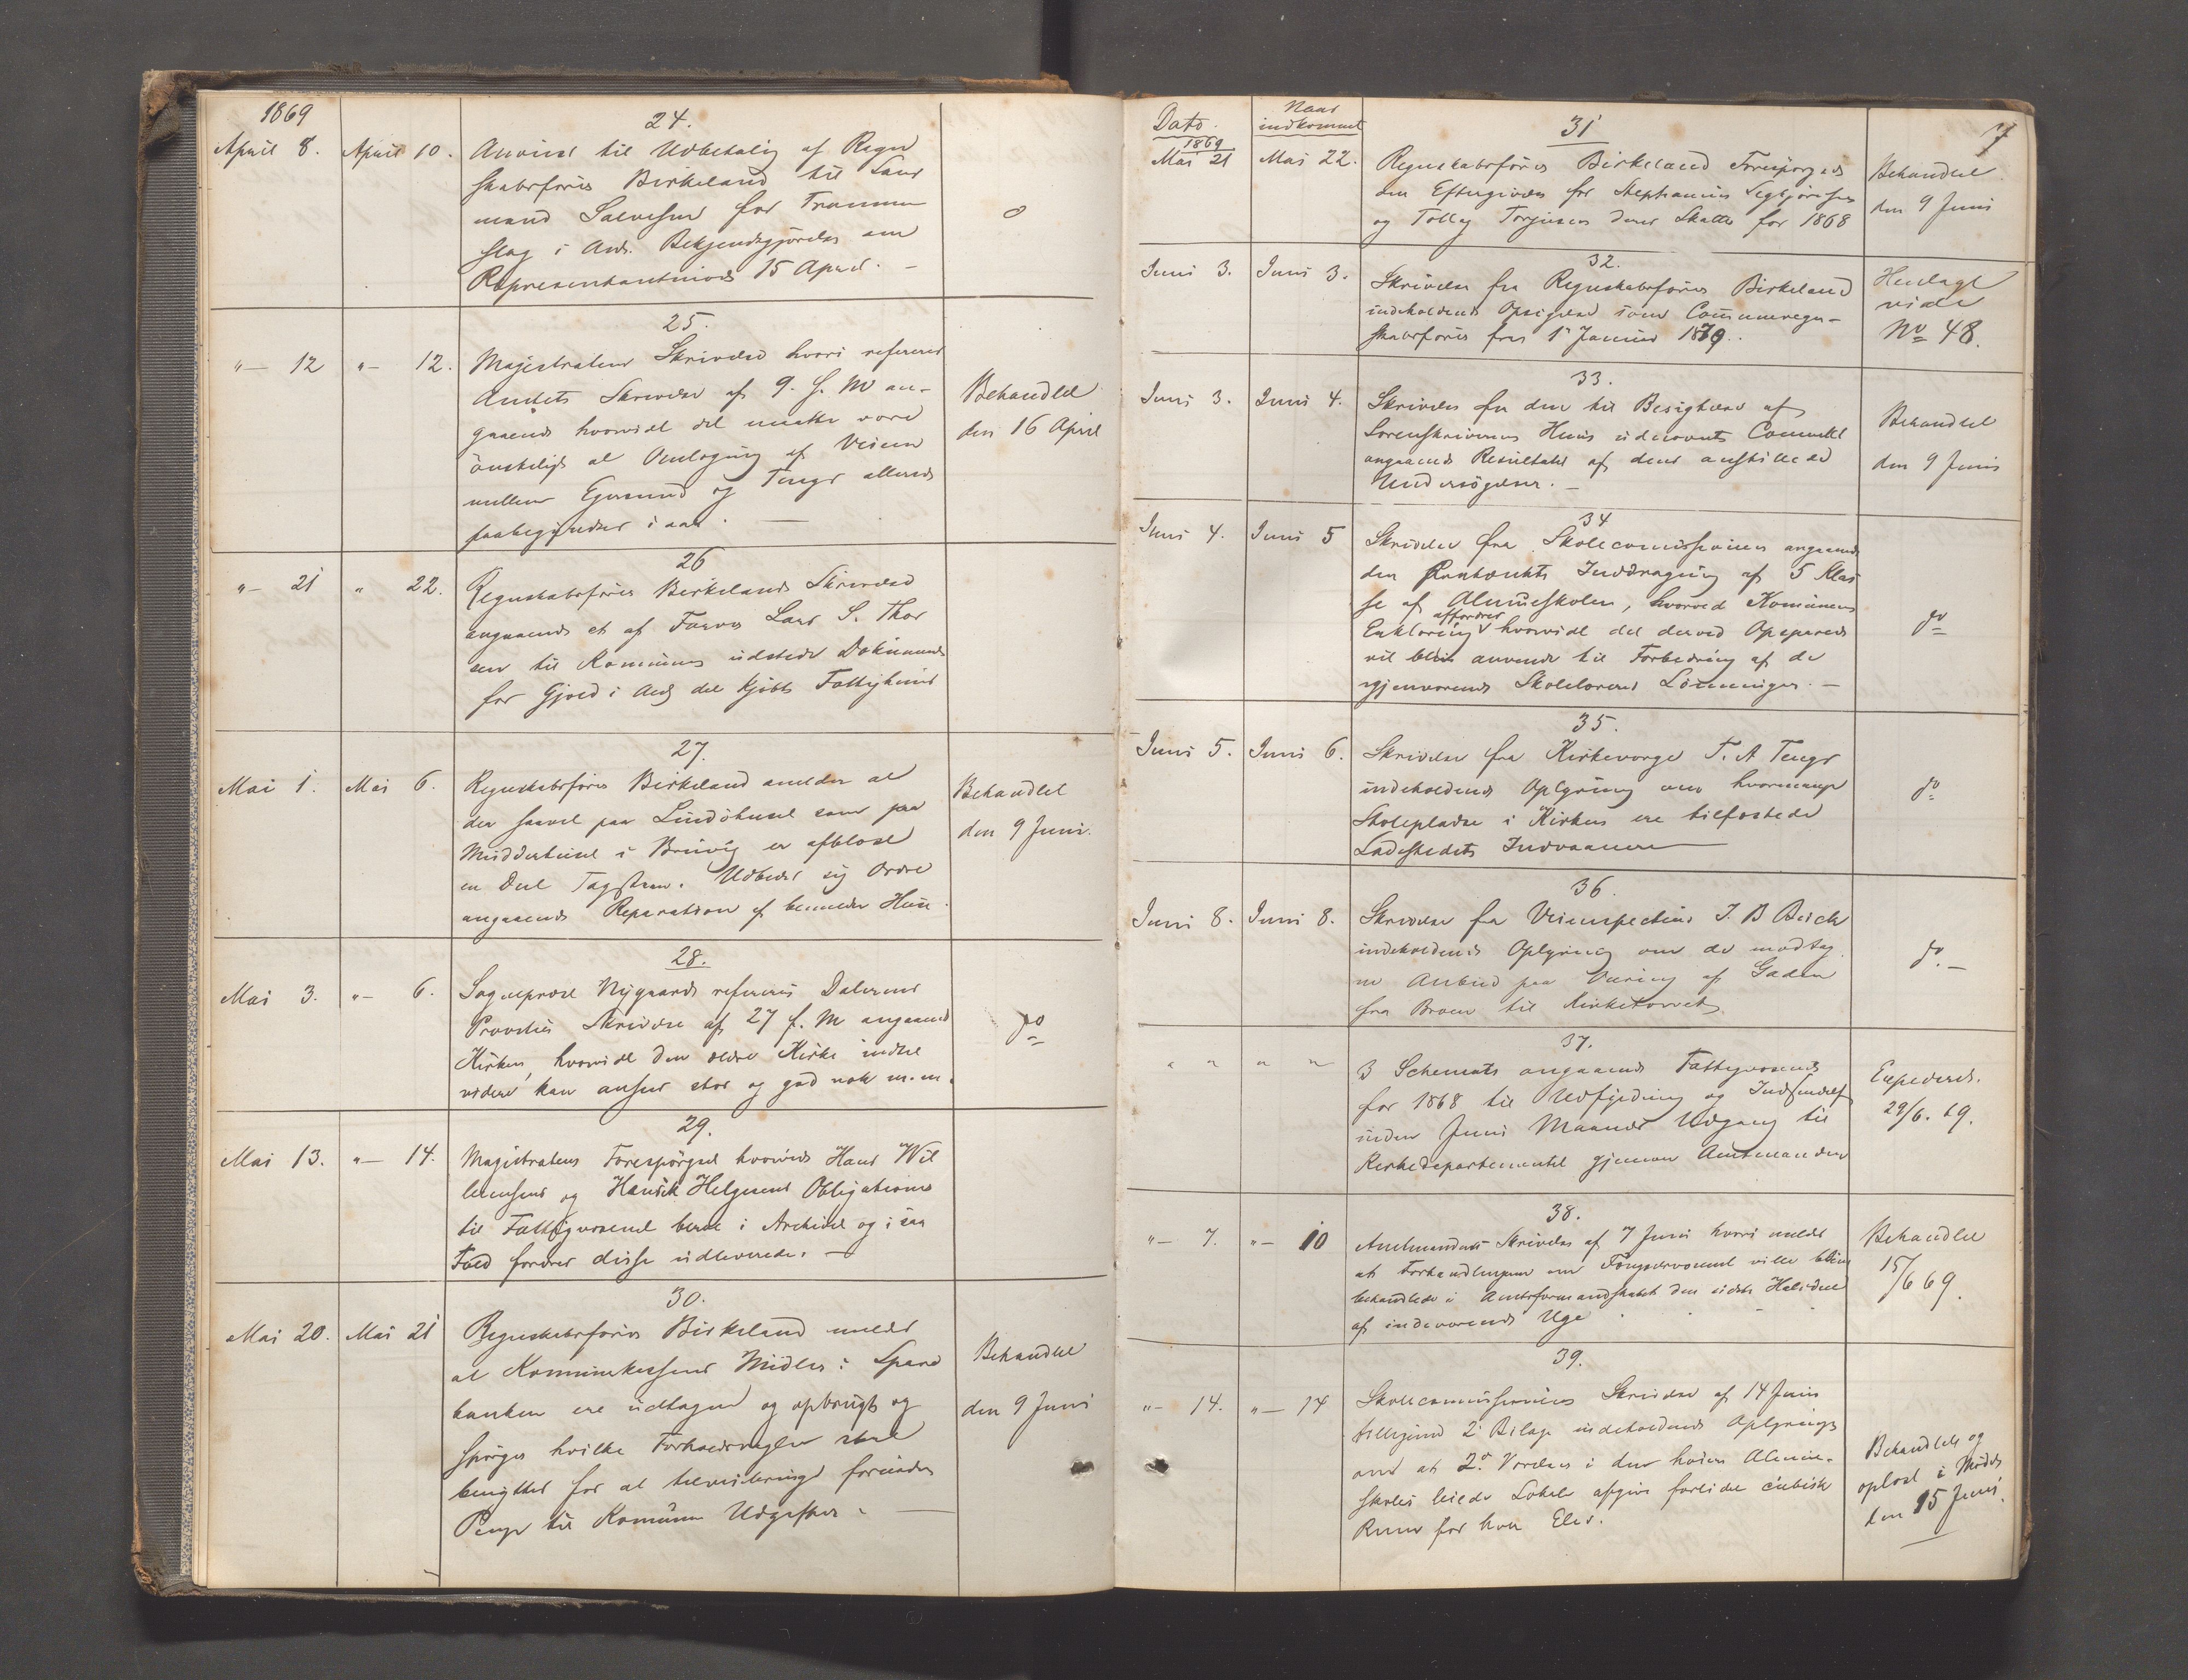 1869
24.
April 8. April 10. Anvist til Udbetaling af Regn
skabsfører Birkeland til Lars
mand Salvesen for Tromme
slag i Anl. Bekjendtgjørelse om
Representantmøde 15 April. —
25.
"— 12 "— 12. Magistratens Skrivelse hvori refereres
Amtets Skrivelse af 9. f. M an-
gaaende hvorvidt det maatte være
ønskeligt at Omlægning af Veien
mellem Egersund og Tengs allerede
paabegyndes i aar. —
Behandlet
den 16 April
26
"— 21 " 22. Regnskabsfører Birkelands Skrivelse
angaaende et af Farver Lars S. Thor
sen til Kommunen udstedt Dokument
for Gjæld i Anl. det kjøbte Fattighuus
27.
Mai 1. Mai 6. Regnskabsfører Birkeland melder at
der saavel paa Lindøhuset som paa
Mudderhuset i Bruvig er afblæst
en Deel Tagsteen. Udbeder sig Ordre
angaaende Reparation af bemeldte Huse.
Behandlet
den 9 Juni.
28.
Mai 3. "— 6. Sognepræst Nygaards refererer Dalernes
Provsties Skrivelse af 27 f. M angaaende
Kirken, hvorvidt den ældre Kirke indtil
videre kan ansees stor og god nok m. m.
do
29.
Mai 13. "— 14. Magistratens Forespørgsel hvorvidt Hans Wil
lumsens og Henrik Helgesens Obligationer
til Fattigvæsenet beror i Archivet og i saa
Fald fordrer disse udleverede. —
30.
Mai 20. Mai 21 Regnskabsfører Birkeland melder
at Kommunekassens Midler i Spare
banken ere udtagne og opbrugt og
spørger hvilke Forholdsregler skal
benyttes for at tilveiebringe fornødne
Penge til Kommunens Udgifter. —
Behandlet
den 9 Juni
Dato. Naar
indkommet
7
1869
31
Mai 21 Mai 22. Regnskabsfører Birkeland Forespørges
om Eftergivelse for Stephanius Sigbjørnsen
og Tollag Torjusen deres Skatter for 1868
Behandlet
den 9 Juni
32.
Juni 3. Juni 3. Skrivelse fra Regnskabsfører Birkeland
indeholdende Opsigelse som Communeregn-
skabsfører fra 1ste Januar 1870.
Henlagt
vide
No 48.
33.
Juni 3. Juni 4. Skrivelse fra den til Besigtelse af
Sorenskriverens Huus udnævnte Committe
angaaende Resultatet af dens anstillede
Undersøgelser. —
Behandlet
den 9 Juni
34
Juni 4. Juni 5 Skrivelse fra Skolecommissionen angaaende
den paatænkte Inddragning af 5 Klas
se af Almueskolen, hvorved Kommunens
affordres
Erklæring hvorvidt det derved Opsparede
vil blive anvendt til Forbedring af de
igjenværende Skolelæreres Lønninger. —
do
35.
Juni 5. Juni 6. Skrivelse fra Kirkeværge T. A Tengs
indeholdende Oplysning om hvormange
Stolepladse i Kirken ere tilfæstede
Ladestedets Indvaanere —
do
36.
Juni 8. Juni 8. Skrivelse fra Veiinspecteur J. B Beich
indeholdende Oplysning om de modtag
ne Anbud paa Veiring af Gaden
fra Broen til Kirketorvet.
do. —
37.
" " " " 3 Schemata angaaende Fattigvæsenet
for 1868 til Udfyldning og Indsendelse
inden Juni Maaneds Udgang til
Kirkedepartementet gjennem Amtmanden
Expederet.
29/6. 69.
38.
"— 7. "— 10 Amtmandens Skrivelse af 7 Juni hvori meldes
at Forhandlingerne om Fængselsvæsenet ville blive
behandlede i Amtsformandskabet den sidste Halvdeel
af indeværende Uge
Behandlet
15/6 69.
39.
"— 14. "— 14 Skolecommissionens Skrivelse af 14 Juni
tilligemed 2 Bilage indeholdende Oplysninger
om at 2det Værelse i den høiere Almue-
skoles leiede Lokale afgiver forlidet cubisk
Rum for hver Elev.
Behandlet og
oplæst i Møde
den 15 Juni.